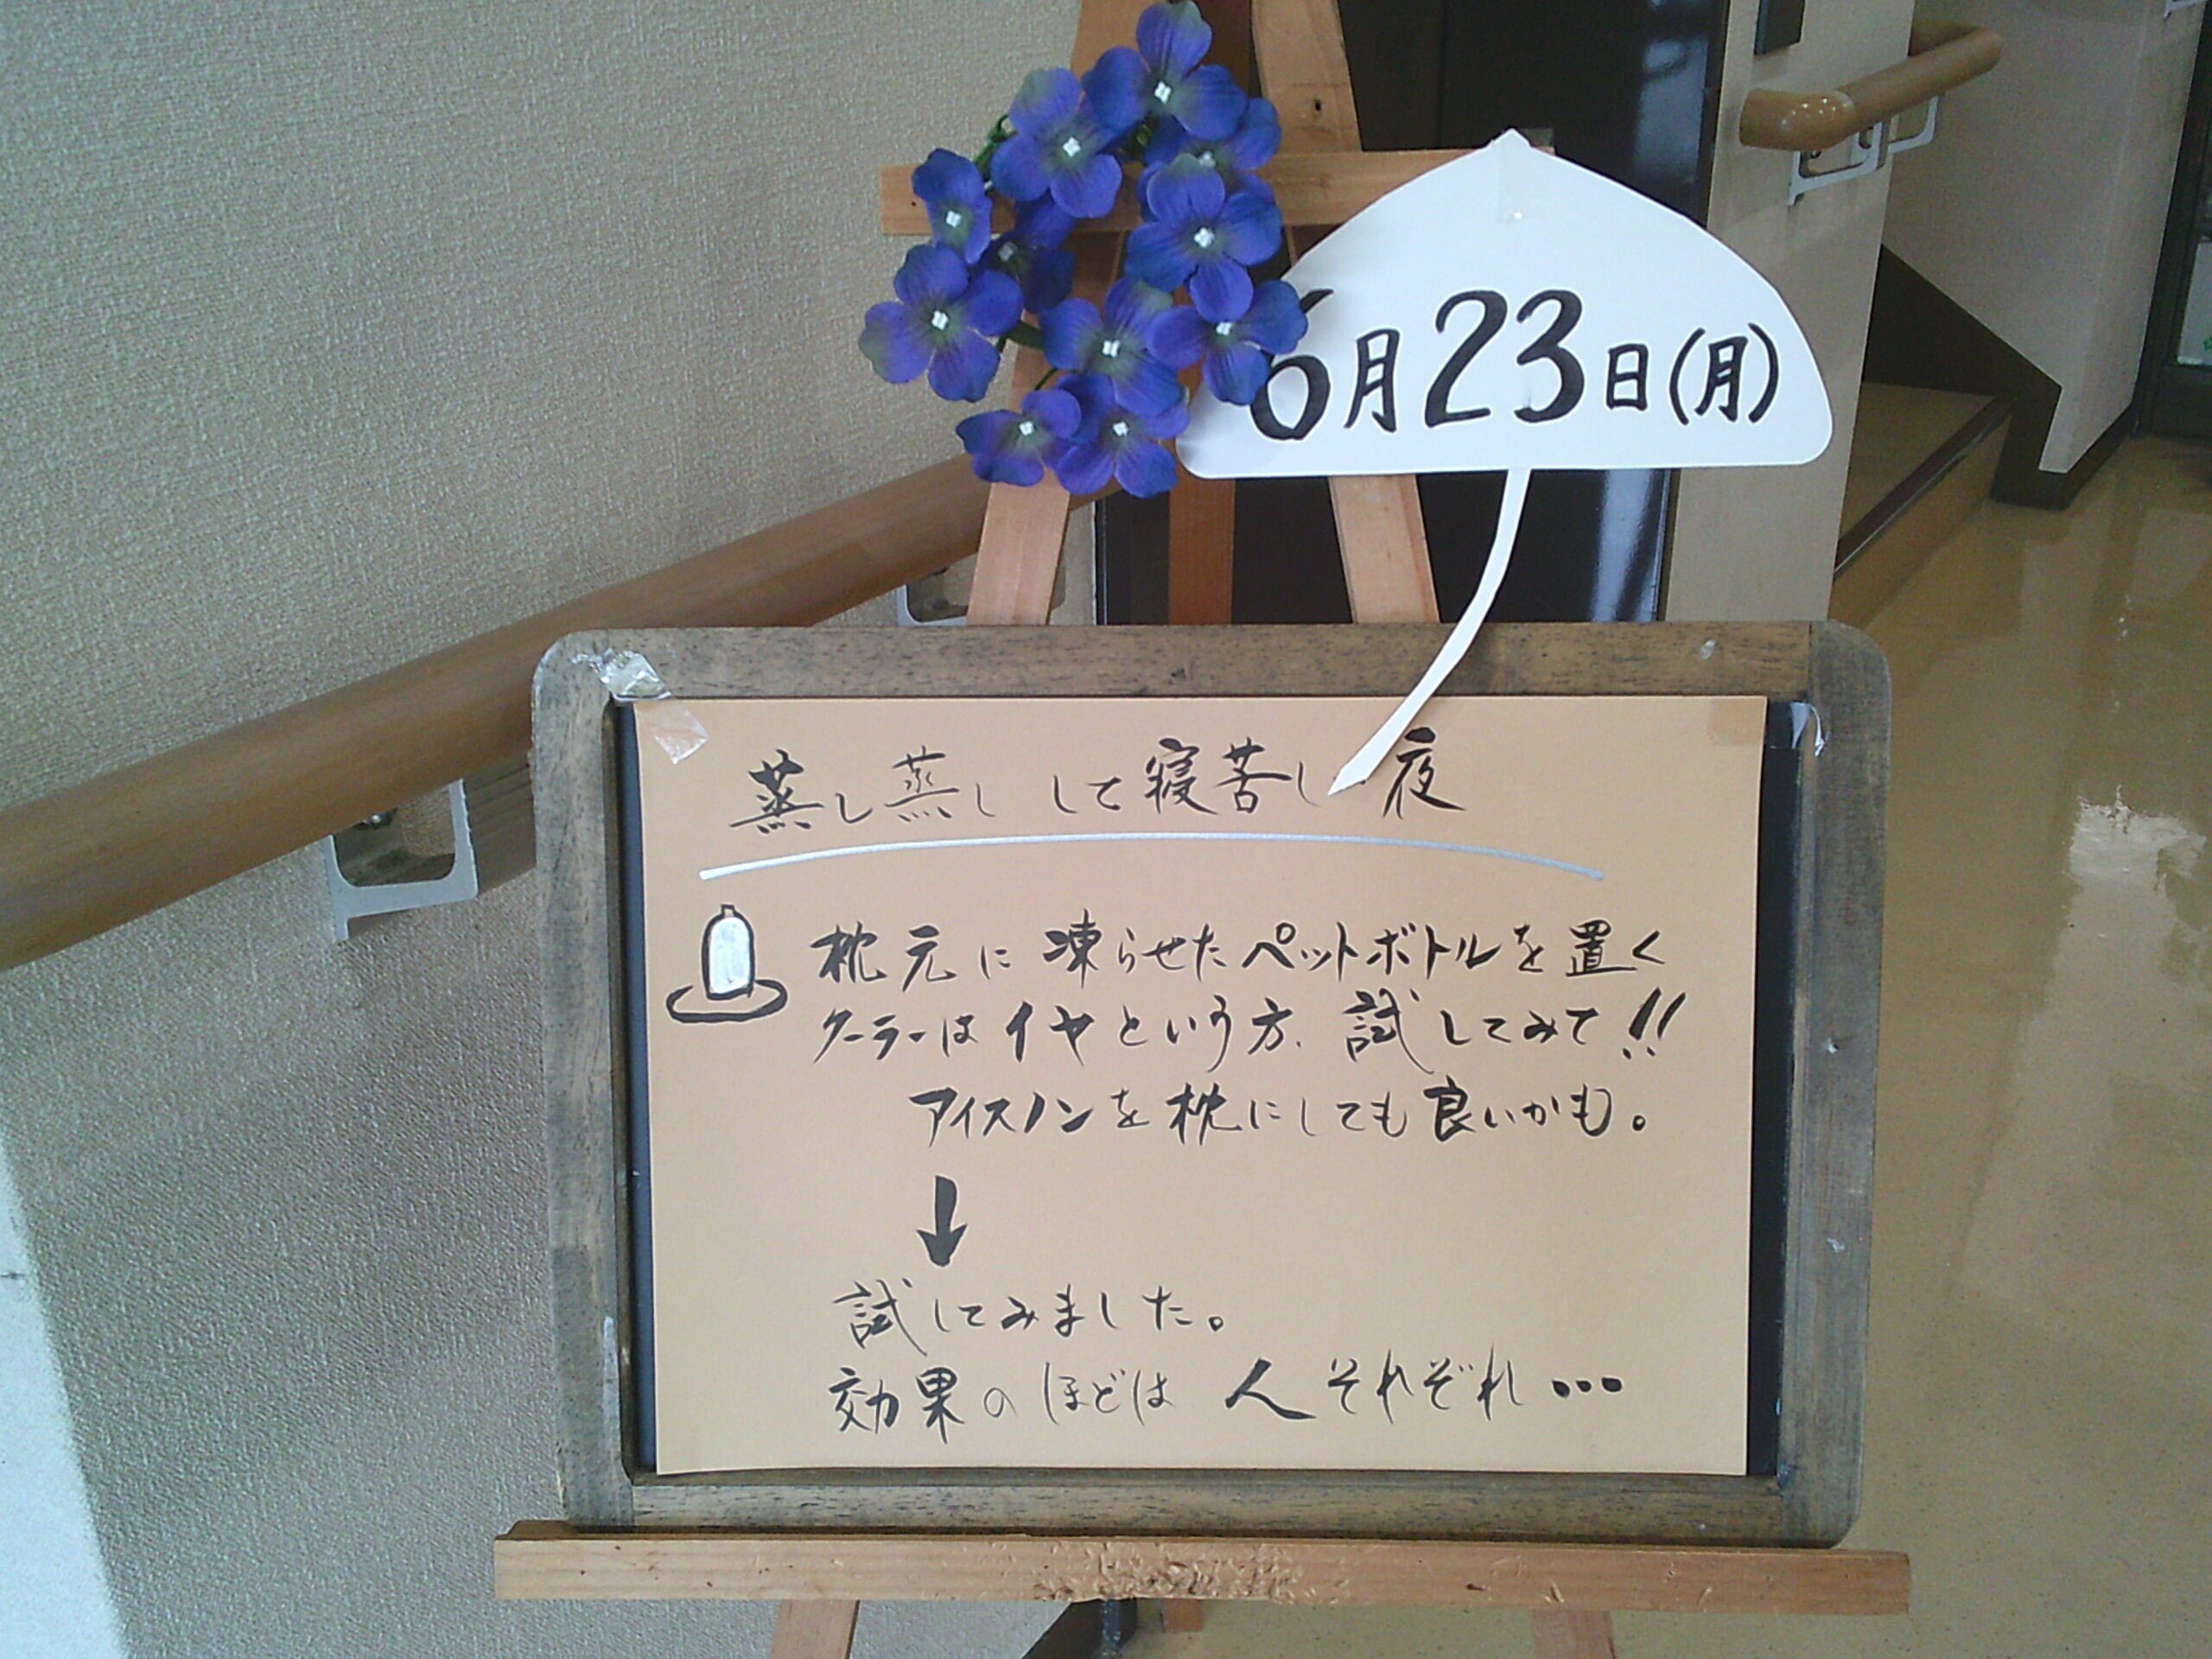 6月23日(月)
蒸し蒸し して寝苦し 夜
枕元に凍らせたペットボトルを置く
クーラーはイヤという方、試してみて!!
アイスノンを枕にしても良いかも。
↓
試してみました。
効果のほどは 人それぞれ・・・